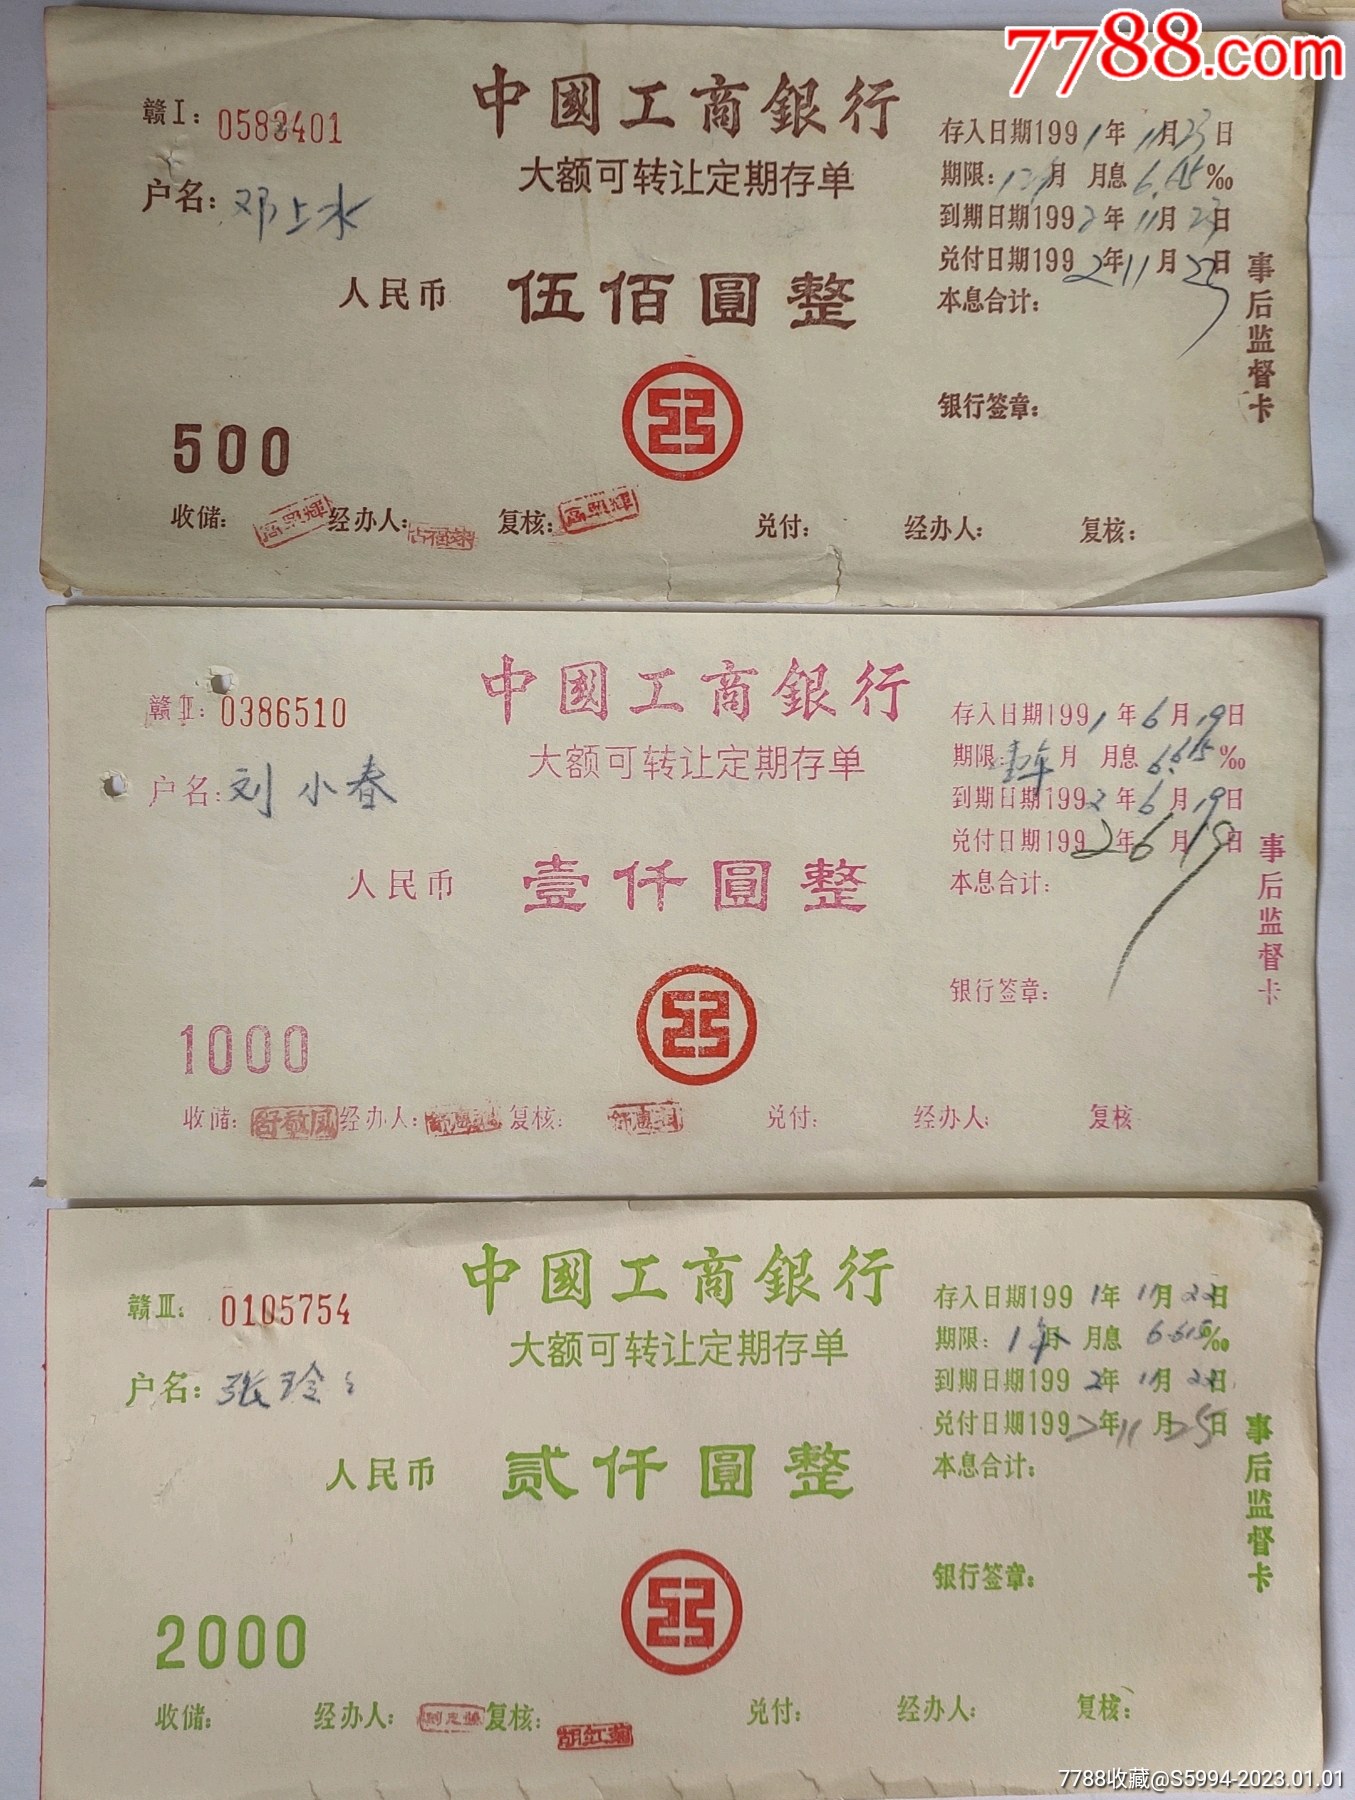 7788.com
中國工商銀行
大额可转让定期存单
赣Ⅰ: 0583401
户名: 邓上水
人民币 伍佰圆整
500
存入日期1991年11月23日
期限: 月 月息6.615‰
到期日期1992年11月23日
兑付日期1992年11月25日
本息合计:
银行签章:
事后监督卡
收储: 经办人: 复核: 兑付: 经办人: 复核:
中國工商銀行
大额可转让定期存单
赣Ⅱ: 0386510
户名: 刘小春
人民币 壹仟圆整
1000
存入日期1991年6月19日
期限:壹年月 月息6.615‰
到期日期1992年6月19日
兑付日期1992年6月19日
本息合计:
银行签章:
事后监督卡
收储: 舒敬凤 经办人: 复核: 兑付: 经办人: 复核
中國工商銀行
大额可转让定期存单
赣Ⅲ: 0105754
户名: 张玲
人民币 贰仟圆整
2000
存入日期1991年11月22日
期限: 1年月 月息6.615‰
到期日期1992年11月22日
兑付日期1992年11月25日
本息合计:
银行签章:
事后监督卡
收储: 经办人: 复核: 胡红菊 兑付: 经办人: 复核:
7788收藏@S5994-2023.01.01